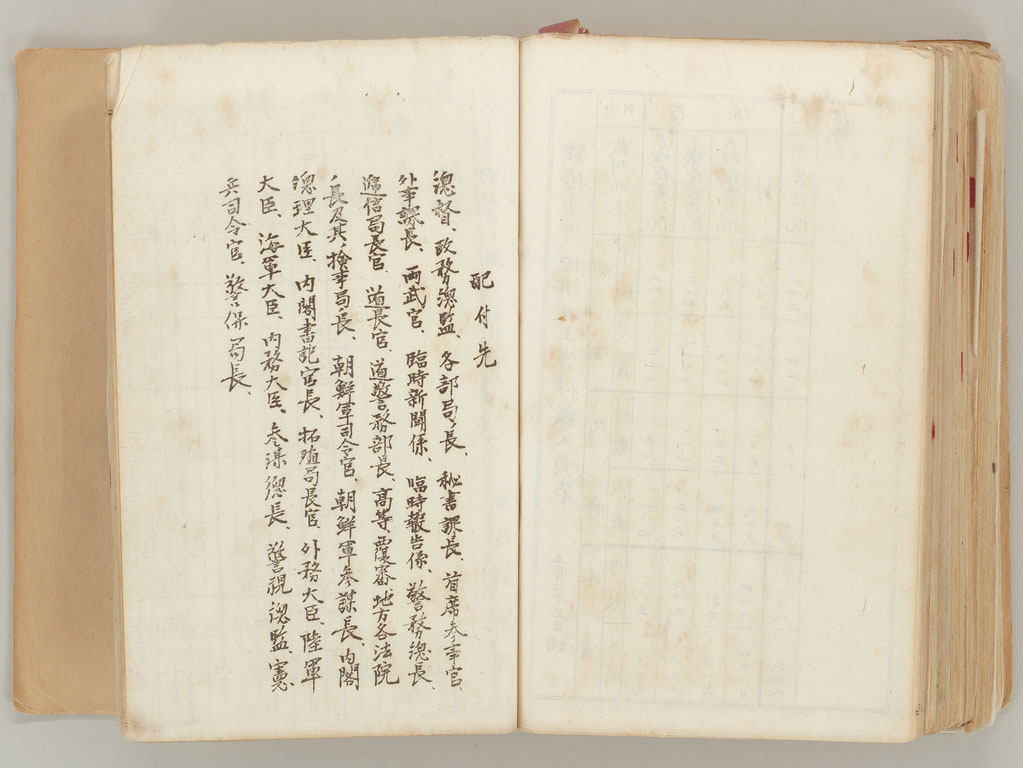 配付先
總督、政務總監、各部局長、秘書課長、首席参事官、
外事課長、両武官、臨時新聞係、臨時報告係、警務總長、
逓信局長官、道長官、道警務部長、高等覆審地方各法院
長及其検事局長、朝鮮軍司令官、朝鮮軍参謀長、内閣
總理大臣、内閣書記官長、拓殖局長官、外務大臣、陸軍
大臣、海軍大臣、内務大臣、参謀總長、警視總監、憲
兵司令官、警保局長、